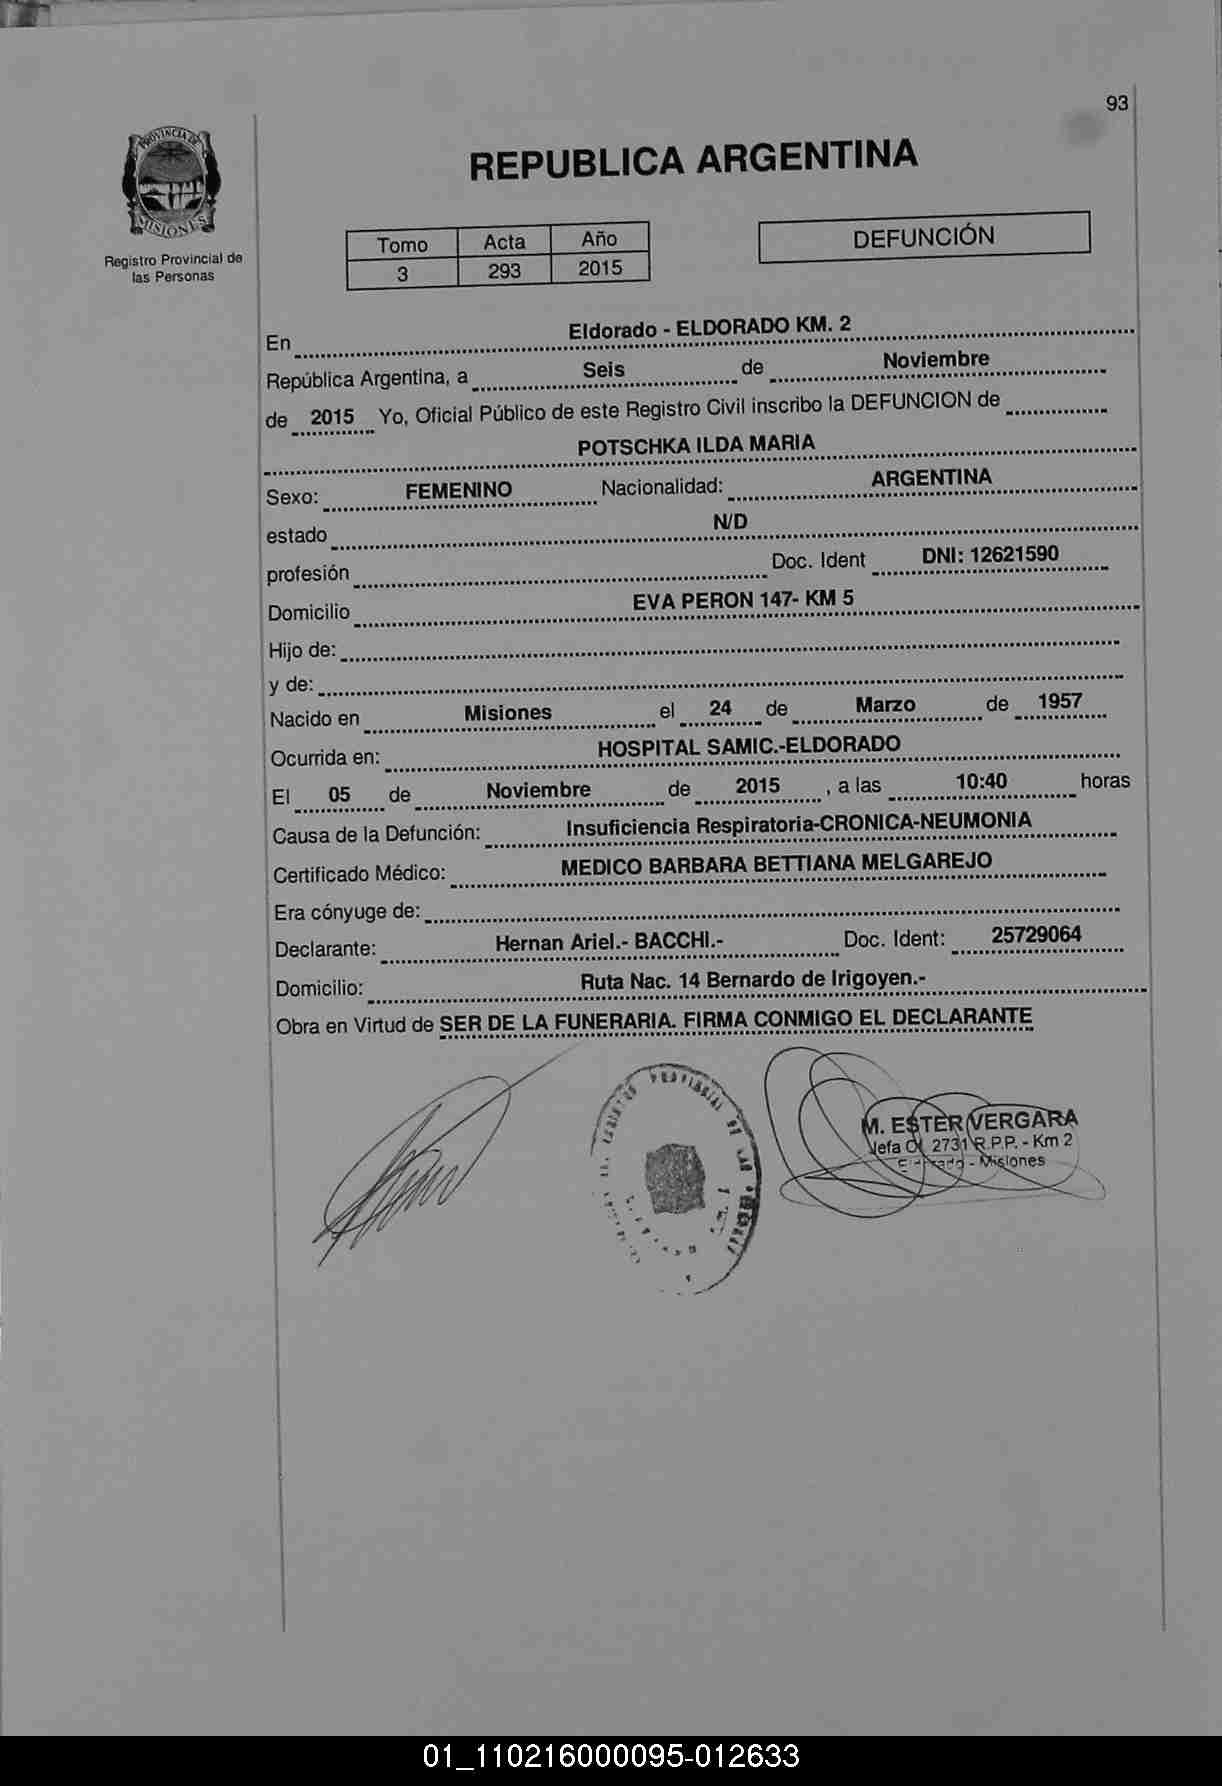 93
PROVINCIA DE
MISIONES
Registro Provincial de
las Personas
REPUBLICA ARGENTINA
Tomo Acta Año
3 293 2015
DEFUNCIÓN
En Eldorado - ELDORADO KM. 2
República Argentina, a Seis de Noviembre
de 2015 Yo, Oficial Público de este Registro Civil inscribo la DEFUNCION de
POTSCHKA ILDA MARIA
Sexo: FEMENINO Nacionalidad: ARGENTINA
estado N/D
profesión Doc. Ident DNI: 12621590
Domicilio EVA PERON 147- KM 5
Hijo de:
y de:
Nacido en Misiones el 24 de Marzo de 1957
Ocurrida en: HOSPITAL SAMIC.-ELDORADO
El 05 de Noviembre de 2015 , a las 10:40 horas
Causa de la Defunción: Insuficiencia Respiratoria-CRONICA-NEUMONIA
Certificado Médico: MEDICO BARBARA BETTIANA MELGAREJO
Era cónyuge de:
Declarante: Hernan Ariel.- BACCHI.- Doc. Ident: 25729064
Domicilio: Ruta Nac. 14 Bernardo de Irigoyen.-
Obra en Virtud de SER DE LA FUNERARIA. FIRMA CONMIGO EL DECLARANTE
PROVINCIAL DE LAS
M. ESTER VERGARA
Jefa Of. 2731 R.P.P. - Km 2
- Misiones
01_110216000095-012633